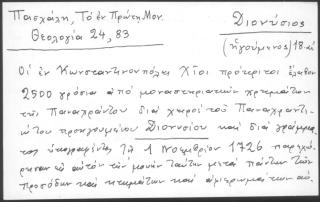 Πασχάλη, Τὸ ἐν Πρώτῃ Μον.
Θεολογία 24, 83
Διονύσιος
(ἡγούμενος) 18
Οἱ ἐν Κωνσταντινουπόλει Χῖοι πρόκριτοι ἔλαβον
2500 γρόσια ἀπὸ μοναστηριακῶν χρημάτων
τῆς Παναχράντου διὰ χειρὸς τοῦ Παναχραντι-
ώτου προηγουμένου Διονυσίου καὶ διὰ γράμμα
τος ὑπογραφέντος τῇ 1 Νοεμβρίου 1726 παρεχώ
ρησαν εἰς αὐτὸν τὴν μονὴν ταύτην μετὰ πάντων τῶν
προσόδων καὶ κτημάτων καὶ ἀφιερωμάτων αὐ.